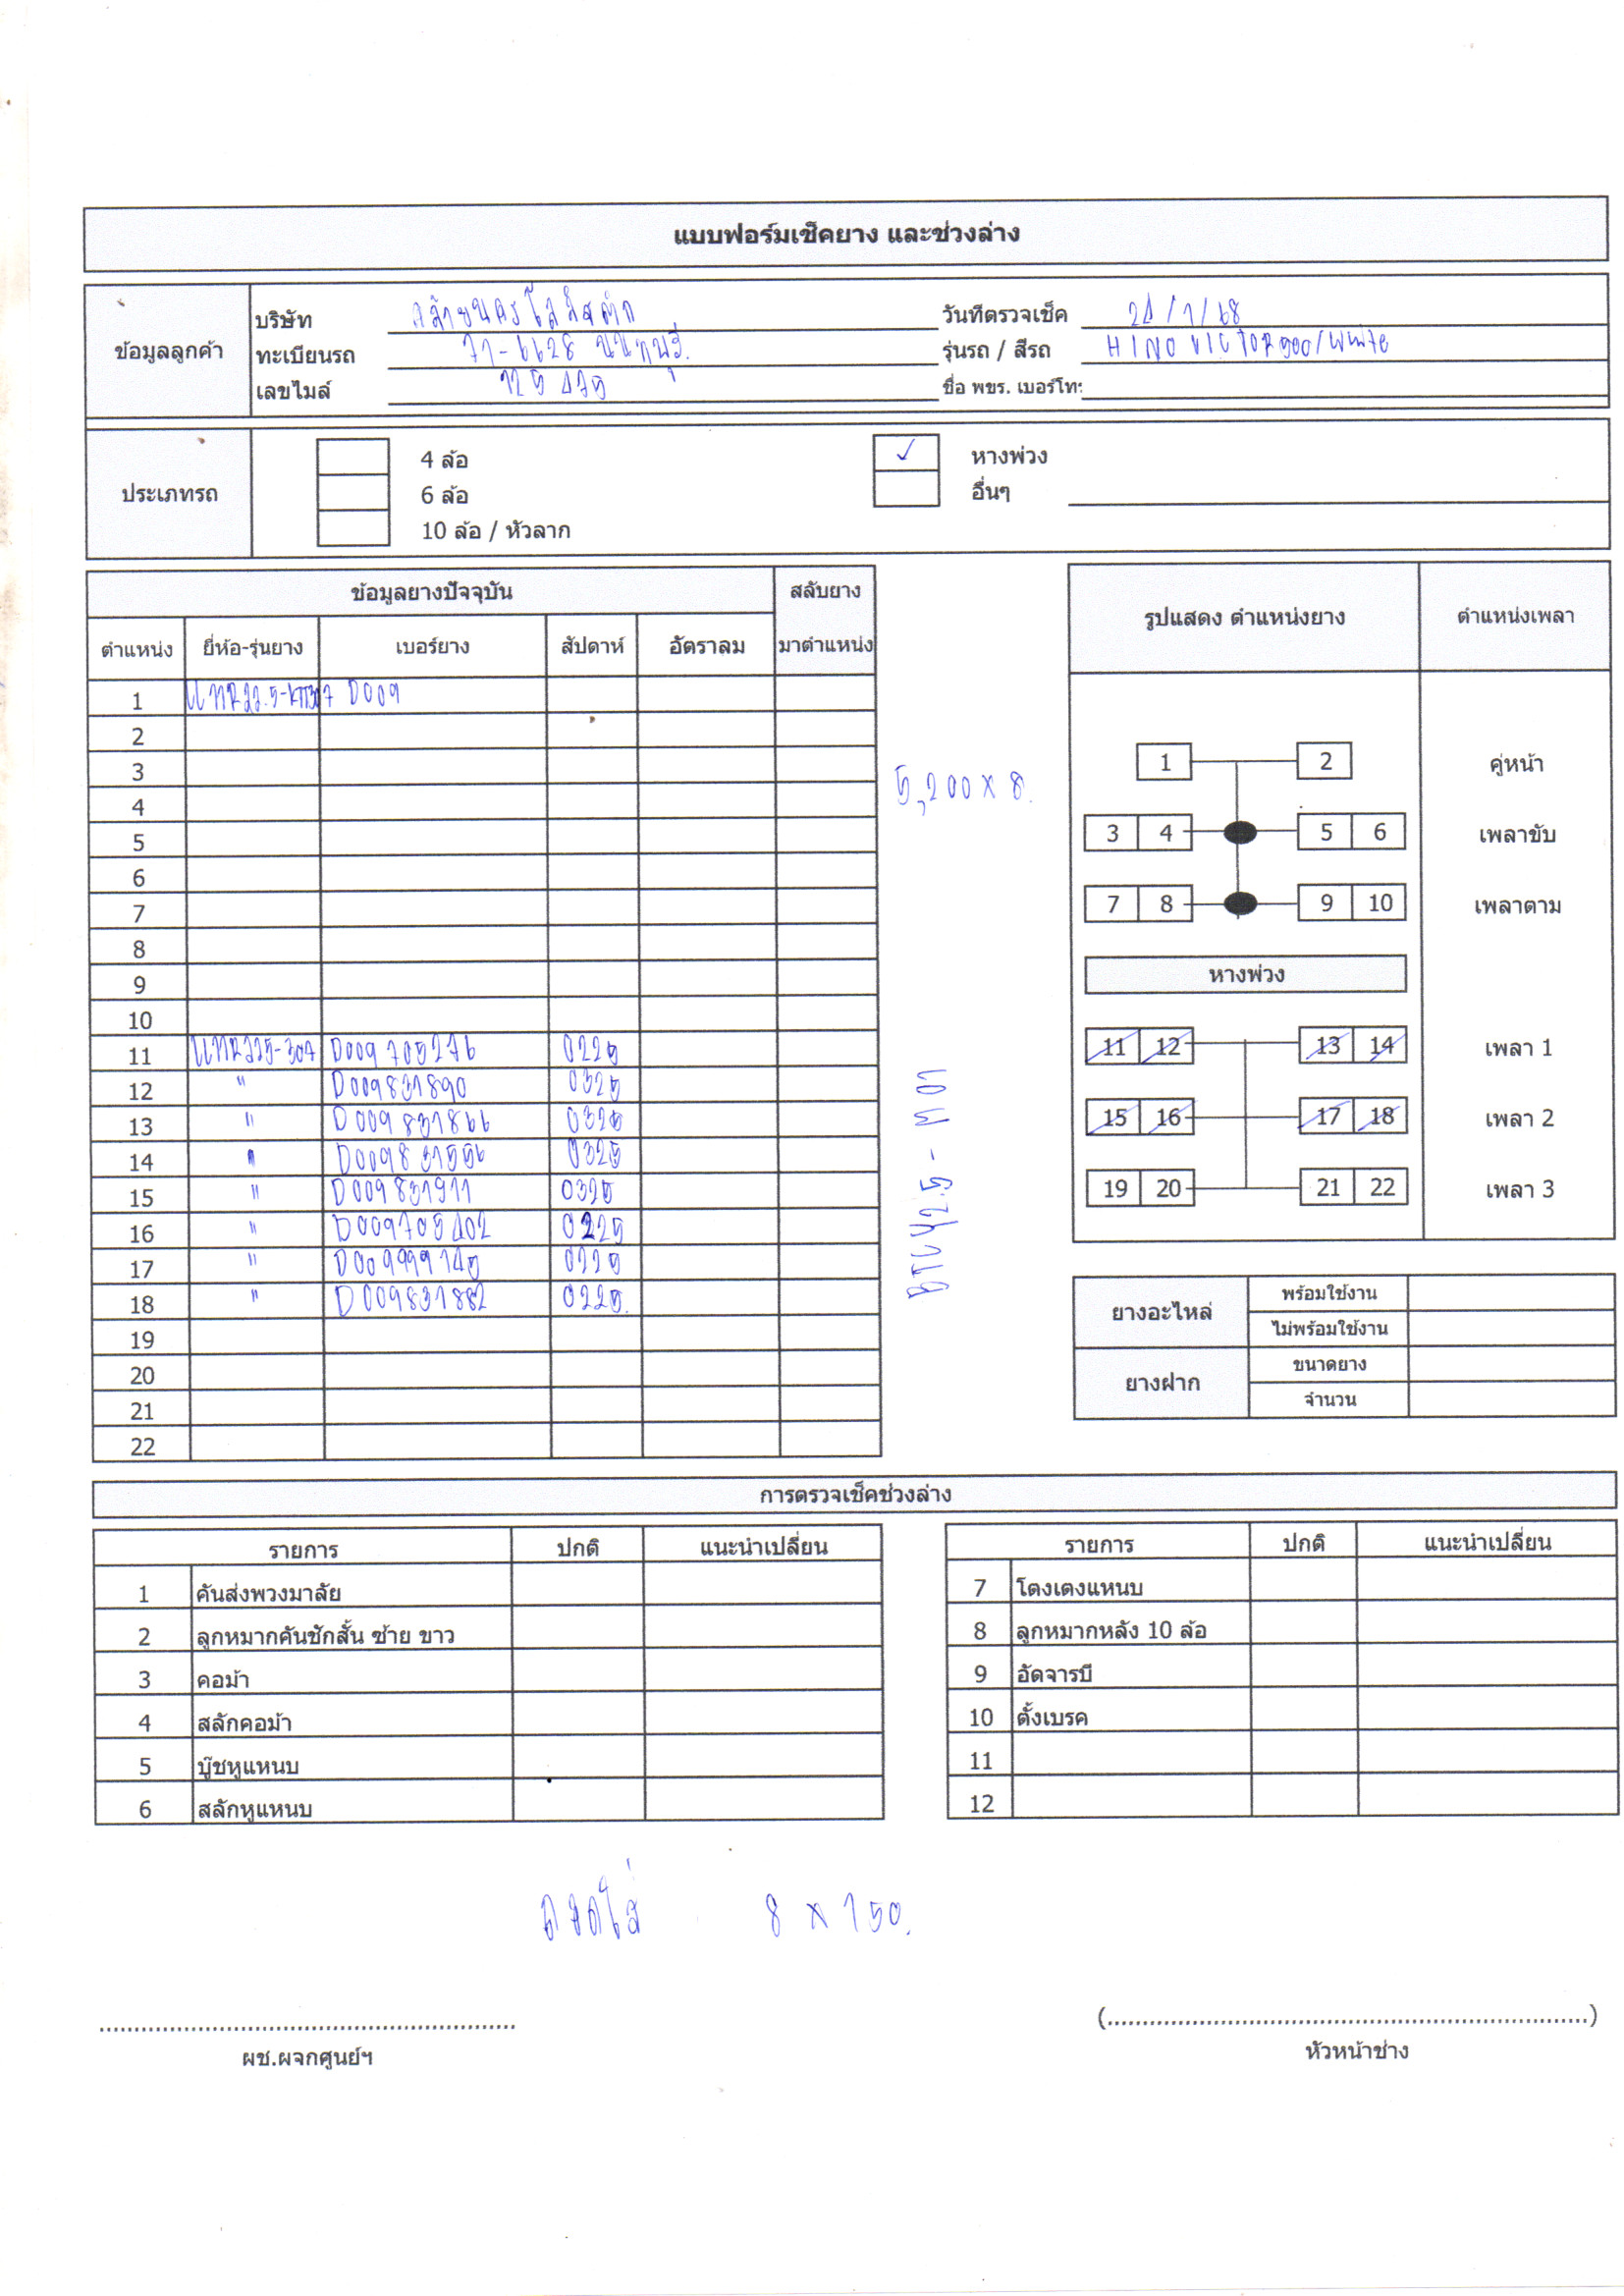 แบบฟอร์มเช็คยาง และช่วงล่าง
ข้อมูลลูกค้า
บริษัท
ทะเบียนรถ 71-6628 นนทบุรี
เลขไมล์ 125 475
วันที่ตรวจเช็ค 24/7/68
รุ่นรถ / สีรถ HINO VICTOR 500/White
ชื่อ พขร. เบอร์โทร
ประเภทรถ
4 ล้อ
6 ล้อ
10 ล้อ / หัวลาก
✓ หางพ่วง
อื่นๆ
ข้อมูลยางปัจจุบัน สลับยาง
ตำแหน่ง ยี่ห้อ-รุ่นยาง เบอร์ยาง สัปดาห์ อัตราลม มาตำแหน่ง
1 D009
2
3
4
5
6
7
8
9
10
11 D009705276 0225
12 " D009831890 0325
13 " D009831866 0325
14 " D009831556 0325
15 " D009831911 0325
16 " D009705402 0225
17 " 0225
18 " D009831882 0225
19
20
21
22
5,200 x 8
รูปแสดง ตำแหน่งยาง ตำแหน่งเพลา
1 2 คู่หน้า
3 4 5 6 เพลาขับ
7 8 9 10 เพลาตาม
หางพ่วง
11 12 13 14 เพลา 1
15 16 17 18 เพลา 2
19 20 21 22 เพลา 3
ยางอะไหล่ พร้อมใช้งาน
ไม่พร้อมใช้งาน
ยางฝาก ขนาดยาง
จำนวน
การตรวจเช็คช่วงล่าง
รายการ ปกติ แนะนำเปลี่ยน
1 คันส่งพวงมาลัย
2 ลูกหมากคันชักสั้น ซ้าย ขาว
3 คอม้า
4 สลักคอม้า
5 บู๊ชหูแหนบ
6 สลักหูแหนบ
รายการ ปกติ แนะนำเปลี่ยน
7 โตงเตงแหนบ
8 ลูกหมากหลัง 10 ล้อ
9 อัดจารบี
10 ตั้งเบรค
11
12
ถอดใส่ 8 x 150
ผช.ผจกศูนย์ฯ
(....................)
หัวหน้าช่าง